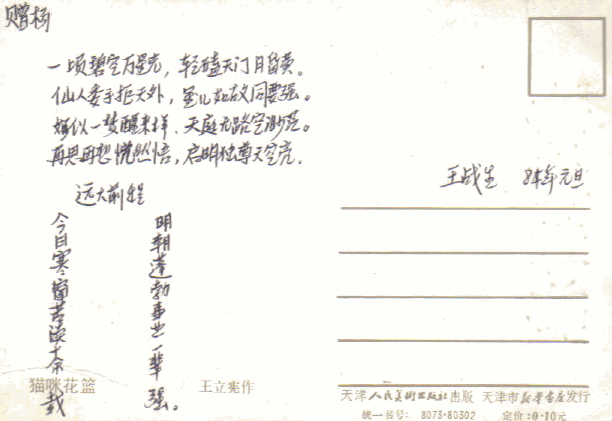 赠杨
一顷碧空万星光，轻磕天门月留黄。
仙人委手拒天外，星儿如故同要强。
好似一梦醒来样，天庭无路空渺茫。
再思再想恍然悟，启明独尊天空亮。
王战生 84年元旦
远大前程
今日寒窗苦读十余载
明朝蓬勃事业一辈强。
猫咪花篮
王立宪作
天津人民美术出版社出版 天津市新华书店发行
统一书号: 8073·80302 定价:0·10元